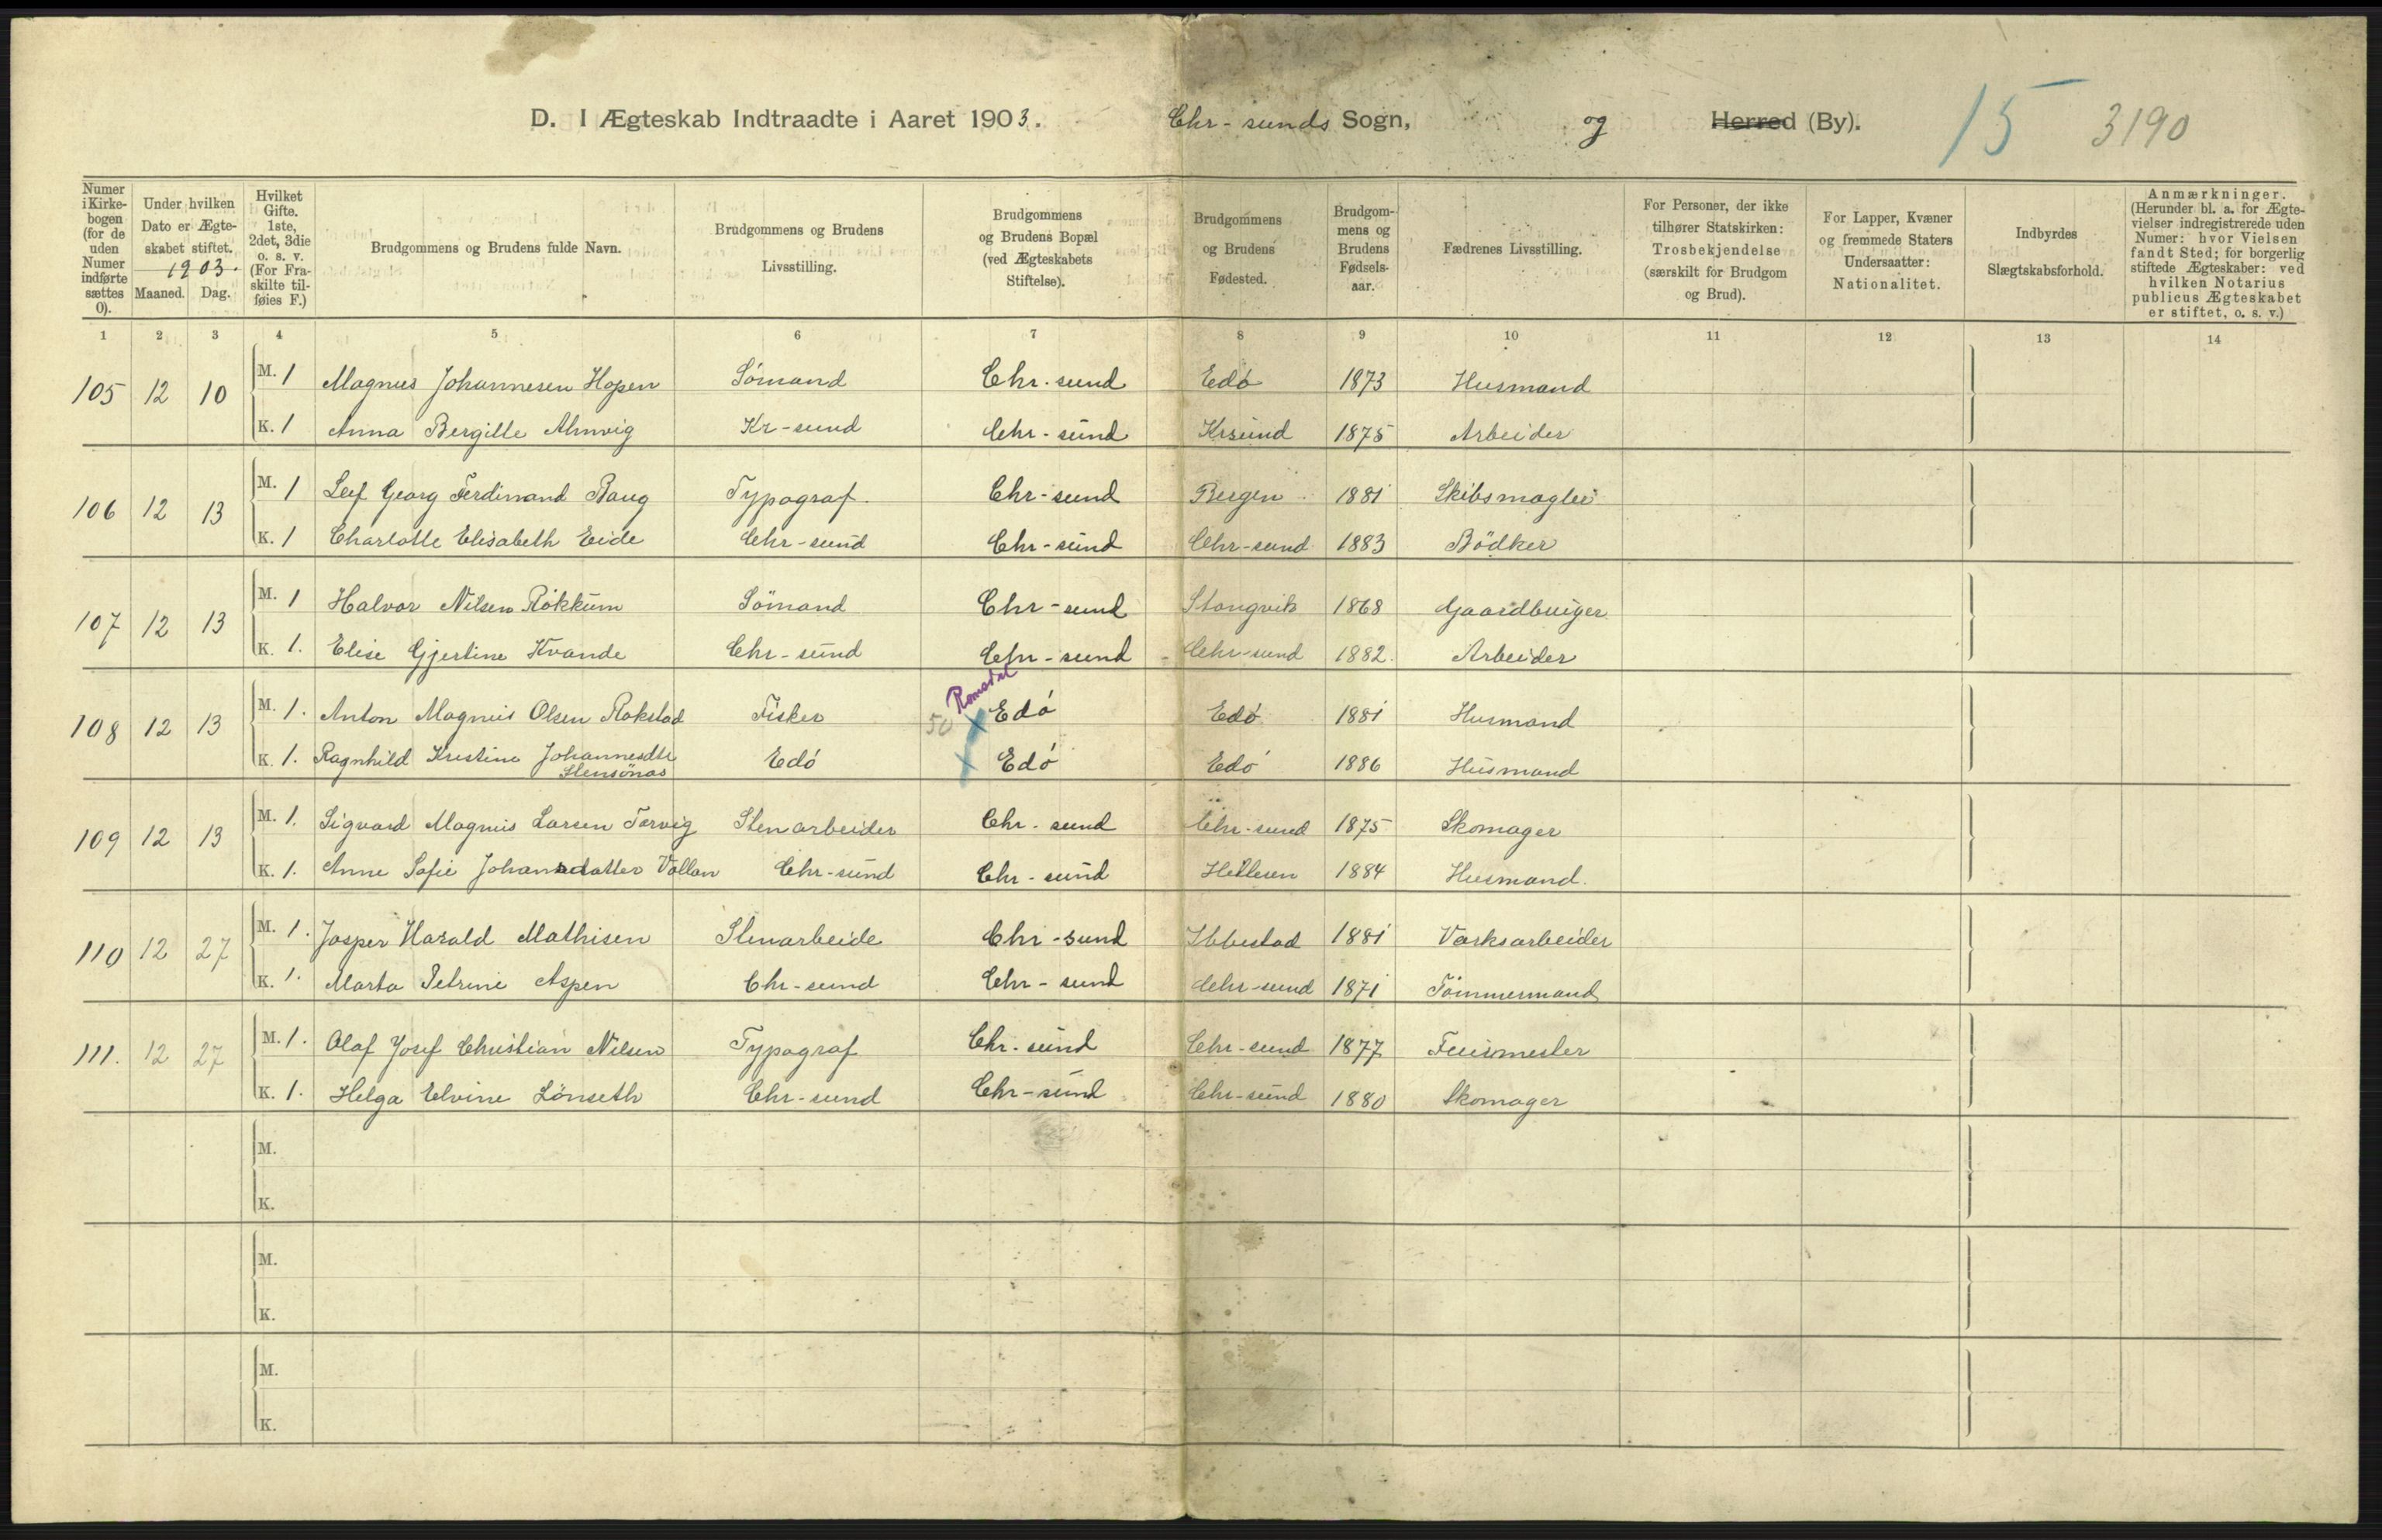 D. I Ægteskab Indtraadte i Aaret 1903. Chr-sunds Sogn, og Herred (By). 15 3190
Numer i Kirkebogen (for de uden Numer indførte sættes 0).
Under hvilken Dato er Ægteskabet stiftet. 1903. Maaned. Dag.
Hvilket Gifte. 1ste, 2det, 3die o. s. v. (For Fraskilte tilføies F.)
Brudgommens og Brudens fulde Navn.
Brudgommens og Brudens Livsstilling.
Brudgommens og Brudens Bopæl (ved Ægteskabets Stiftelse).
Brudgommens og Brudens Fødested.
Brudgommens og Brudens Fødselsaar.
Fædrenes Livsstilling.
For Personer, der ikke tilhører Statskirken: Trosbekjendelse (særskilt for Brudgom og Brud).
For Lapper, Kvæner og fremmede Staters Undersaatter: Nationalitet.
Indbyrdes Slægtskabsforhold.
Anmærkninger. (Herunder bl. a. for Ægtevielser indregistrerede uden Numer: hvor Vielsen fandt Sted; for borgerlig stiftede Ægteskaber: ved hvilken Notarius publicus Ægteskabet er stiftet, o. s. v.)
1 2 3 4 5 6 7 8 9 10 11 12 13 14
105 12 10 M. 1 Magnus Johannesen Hopen Sömand Chr. sund Edö 1873 Husmand
K. 1 Anna Bergitte Almvig Kr-sund Chr-sund Krsund 1875 Arbeider
106 12 13 M. 1 Leif Georg Ferdinand Baug Typograf. Chr-sund Bergen 1881 Skibsmægler
K. 1 Charlotte Elisabeth Eide Chr-sund Chr-sund Chr-sund 1883 Bödker
107 12 13 M. 1 Halvor Nilsen Rökkum Sömand Chr-sund Stangvik 1868 Gaardbruger
K. 1. Elise Gjertine Kvande Chr-sund Chr-sund Chr-sund 1882. Arbeider
Romsdal
108 12 13 M. 1. Anton Magnus Olsen Rokstad Fisker 50 x Edö Edö 1881 Husmand
K. 1. Ragnhild Kristine Johannesdtr Stensönæs Edö x Edö Edö 1886 Husmand
109 12 13 M. 1. Sigvard Magnus Larsen Torvig Stenarbeider Chr. sund Chr-sund 1875 Skomager
K. 1. Anne Sofie Johansdatter Vollan Chr-sund Chr-sund 1884 Husmand.
110 12 27 M. 1. Jasper Harald Mathisen Stenarbeide Chr-sund Ibbestad 1881 Værksarbeider
K. 1. Marta Petrine Aspen Chr-sund Chr-sund Chr-sund 1871 Tömmermand
111. 12 27 M. 1. Olaf Josef Christian Nilsen Typograf Chr-sund Chr-sund 1877
K. 1. Helga Elvine Lönseth Chr-sund Chr-sund Chr-sund 1880 Skomager
M.
K.
M.
K.
M.
K.